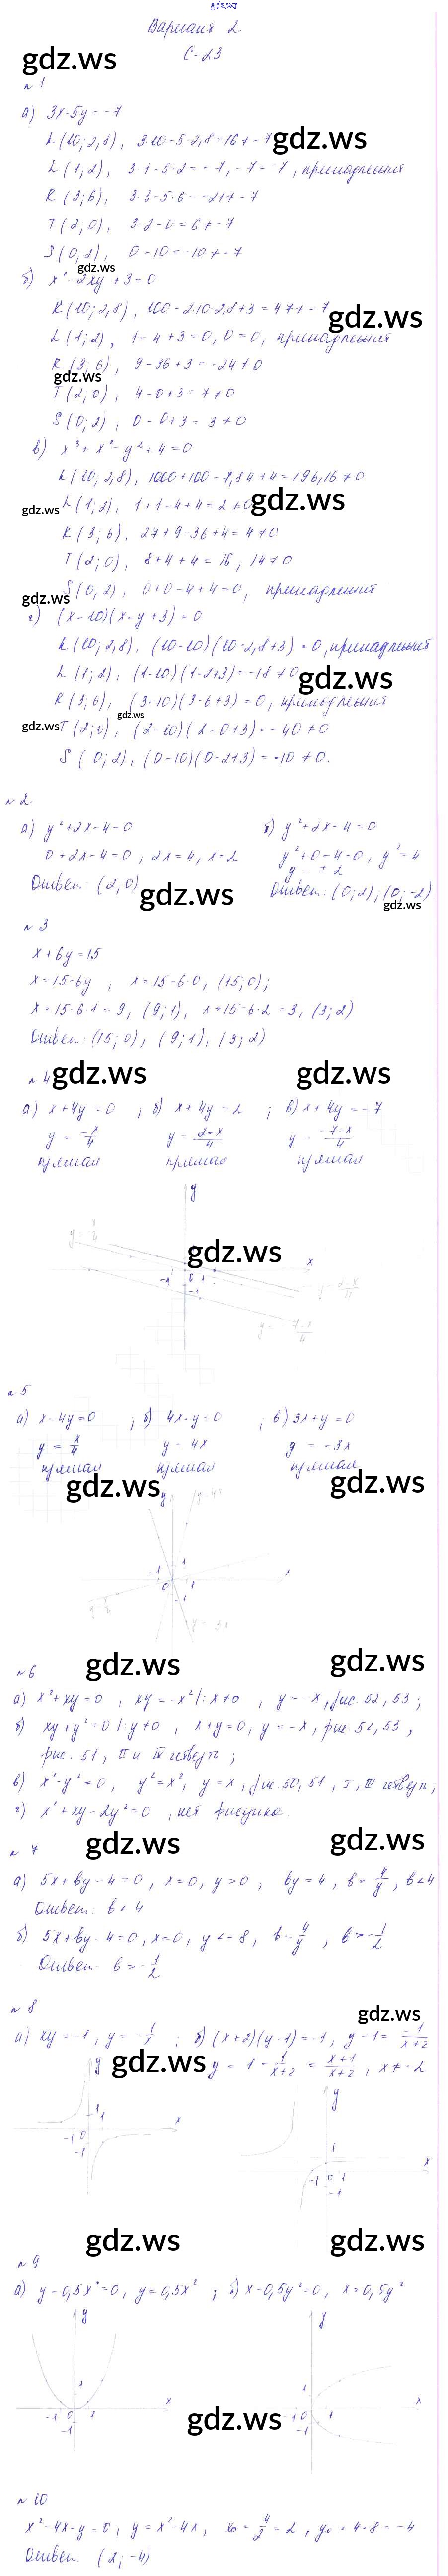 gdz.ws
Вариант 2
С-23
gdz.ws
№1
а) 3x-5y=-7
L(10; 2,8), 3·10-5·2,8=16≠-7
gdz.ws
L(1; 2), 3·1-5·2=-7, -7=-7, принадлежит
R(3; 6), 3·3-5·6=-21≠-7
T(2; 0), 3·2-0=6≠-7
S(0; 2), 0-10=-10≠-7
gdz.ws
б) x²-2xy+3=0
K(10; 2,8), 100-2·10·2,8+3=47≠-7
gdz.ws
L(1; 2), 1-4+3=0, 0=0, принадлежит
R(3; 6), 9-36+3=-24≠0
gdz.ws
T(2; 0), 4-0+3=7≠0
S(0; 2), 0-0+3=3≠0
в) x³+x²-y²+4=0
L(10; 2,8), 1000+100-7,84+4=196,16≠0
gdz.ws
L(1; 2), 1+1-4+4=2≠0
gdz.ws
R(3; 6), 27+9-36+4=4≠0
T(2; 0), 8+4+4=16, 14≠0
S(0; 2), 0+0-4+4=0, принадлежит
gdz.ws
г) (x-10)(x-y+3)=0
L(10; 2,8), (10-10)(10-2,8+3)=0, принадлежит
L(1; 2), (1-10)(1-2+3)=-18≠0
gdz.ws
R(3; 6), (3-10)(3-6+3)=0, принадлежит
gdz.ws
gdz.ws
T(2; 0), (2-10)(2-0+3)=-40≠0
S(0; 2), (0-10)(0-2+3)=-10≠0.
№2.
а) y²+2x-4=0 б) y²+2x-4=0
0+2x-4=0, 2x=4, x=2 y²+0-4=0, y²=4
y=±2
Ответ: (2; 0) Ответ: (0; 2); (0; -2)
gdz.ws
gdz.ws
№3
x+6y=15
x=15-6y, x=15-6·0, (15; 0);
x=15-6·1=9, (9; 1), x=15-6·2=3, (3; 2)
Ответ: (15; 0), (9; 1), (3; 2)
№4
gdz.ws gdz.ws
а) x+4y=0 ; б) x+4y=2 ; в) x+4y=-7
y=-x/4 y=(2-x)/4 y=(-7-x)/4
прямая прямая прямая
y
gdz.ws
x
-1 0 1
-1
№5
а) x-4y=0 ; б) 4x-y=0 ; в) 3x+y=0
y=x/4 y=4x y=-3x
прямая прямая прямая
gdz.ws gdz.ws
y y=4x
1
-1 0 1 x
-1
№6
gdz.ws gdz.ws
а) x²+xy=0, xy=-x² |:x≠0, y=-x, рис. 52, 53;
б) xy+y²=0 |:y≠0, x+y=0, y=-x, рис. 52, 53,
рис. 51, II и IV четверть;
в) x²-y²=0, y²=x², y=x, рис. 50, 51, I, III четверть;
г) x²+xy-2y²=0, нет рисунка.
№7
gdz.ws gdz.ws
а) 5x+by-4=0, x=0, y>0, by=4, b=4/y, b<4
Ответ: b<4
б) 5x+by-4=0, x=0, y<-8, b=4/y, b>-1/2
Ответ: b>-1/2
№8
gdz.ws
а) xy=-1, y=-1/x ; б) (x+2)(y-1)=-1, y-1=-1/(x+2)
gdz.ws
y=1-1/(x+2)=(x+1)/(x+2), x≠-2
y
1
-1 0 1 x
-1
y
1
-1 0 1 x
-1
gdz.ws gdz.ws
№9
а) y-0,5x²=0, y=0,5x² ; б) x-0,5y²=0, x=0,5y²
y
1
-1 0 1 x
-1
y
1
-1 0 1 x
-1
gdz.ws
№10
x²-4x-y=0, y=x²-4x, x₀=4/2=2, y₀=4-8=-4
Ответ: (2; -4)